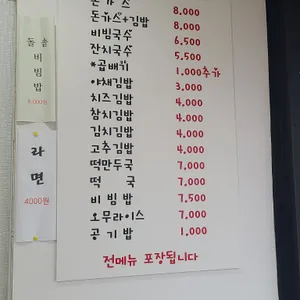 돌솥
비빔밥
8,000원
라면
4000원
돈가스 8,000
돈가스+김밥 8,000
비빔국수 6,500
잔치국수 5,500
*곱배기 1,000추가
야채김밥 3,000
치즈김밥 4,000
참치김밥 4,000
김치김밥 4,000
고추김밥 4,000
떡만두국 7,000
떡국 7,000
비빔밥 7,500
오무라이스 7,000
공기밥 1,000
전메뉴 포장됩니다